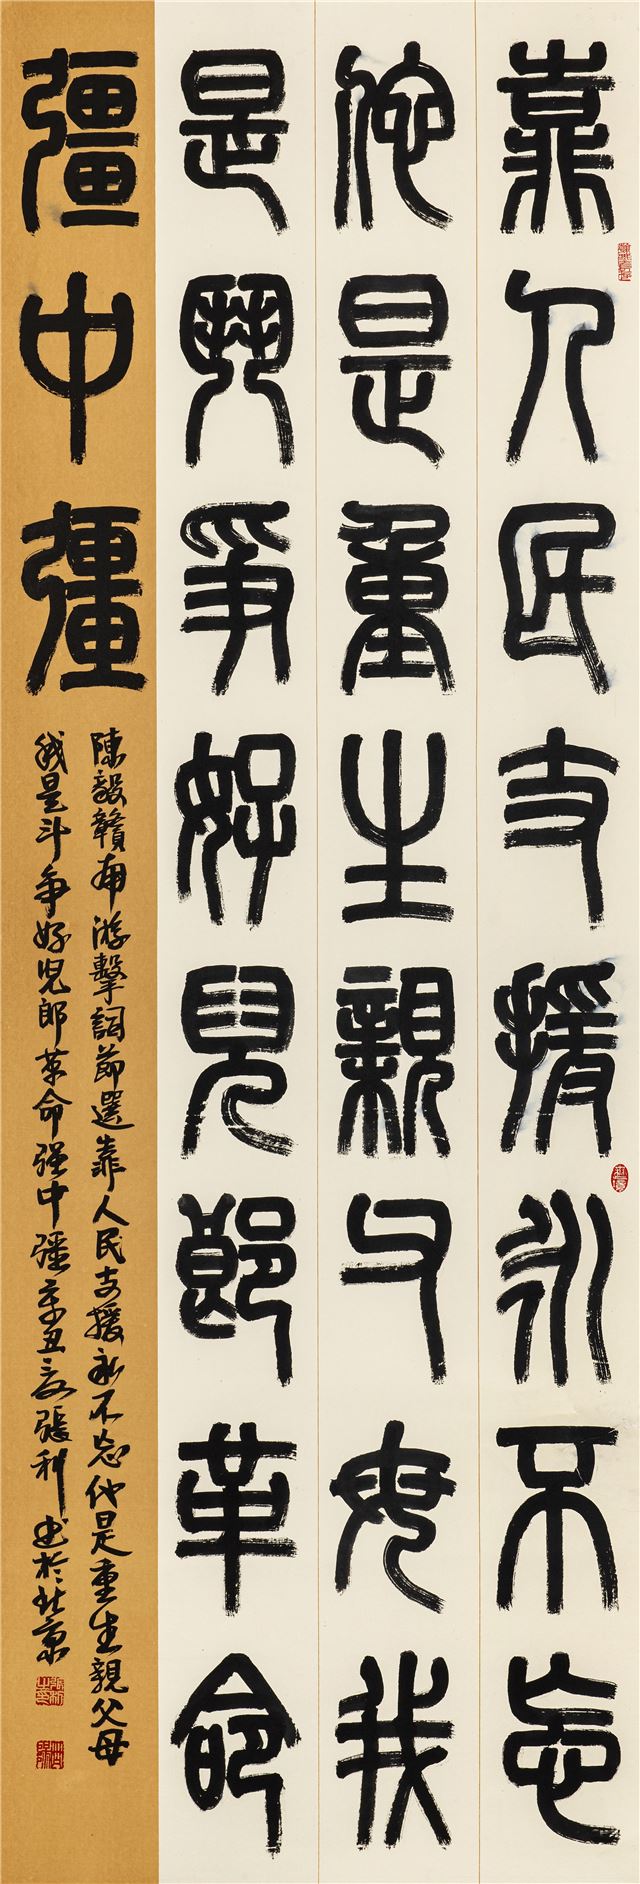 靠人民支援永不忘
他是重生親父母我
是鬥爭好兒郎革命
彊中彊
陳毅贛南游擊詞節選靠人民支援永不忘他是重生親父母
我是斗争好児郎革命强中彊辛丑之夏張利書於北京